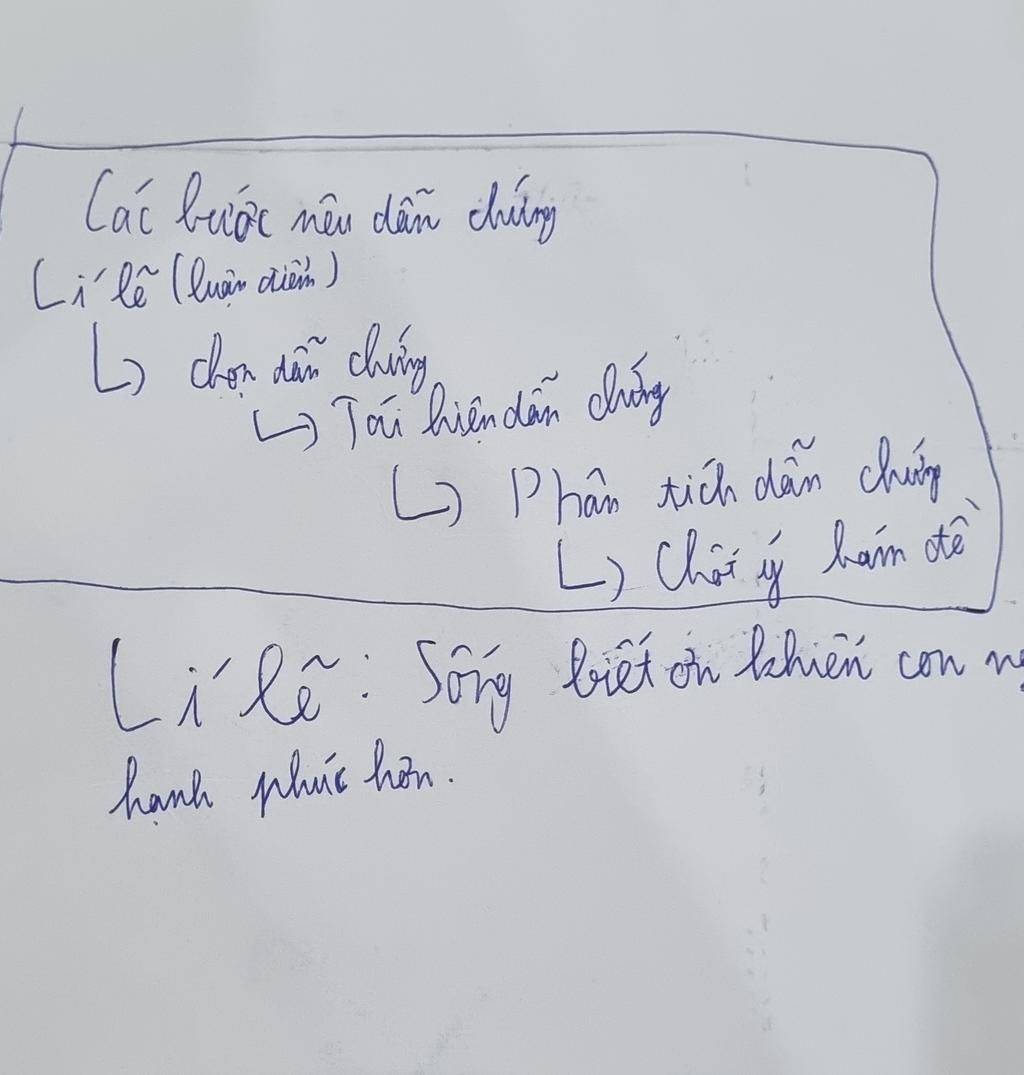 Các bước nêu dẫn chứng
Lí lẽ (luận điểm)
↳ chọn dẫn chứng
↳ Tái hiện dẫn chứng
↳ Phân tích dẫn chứng
↳ Chốt ý bám đề
Lí lẽ: Sống biết ơn khiến con
hạnh phúc hơn.